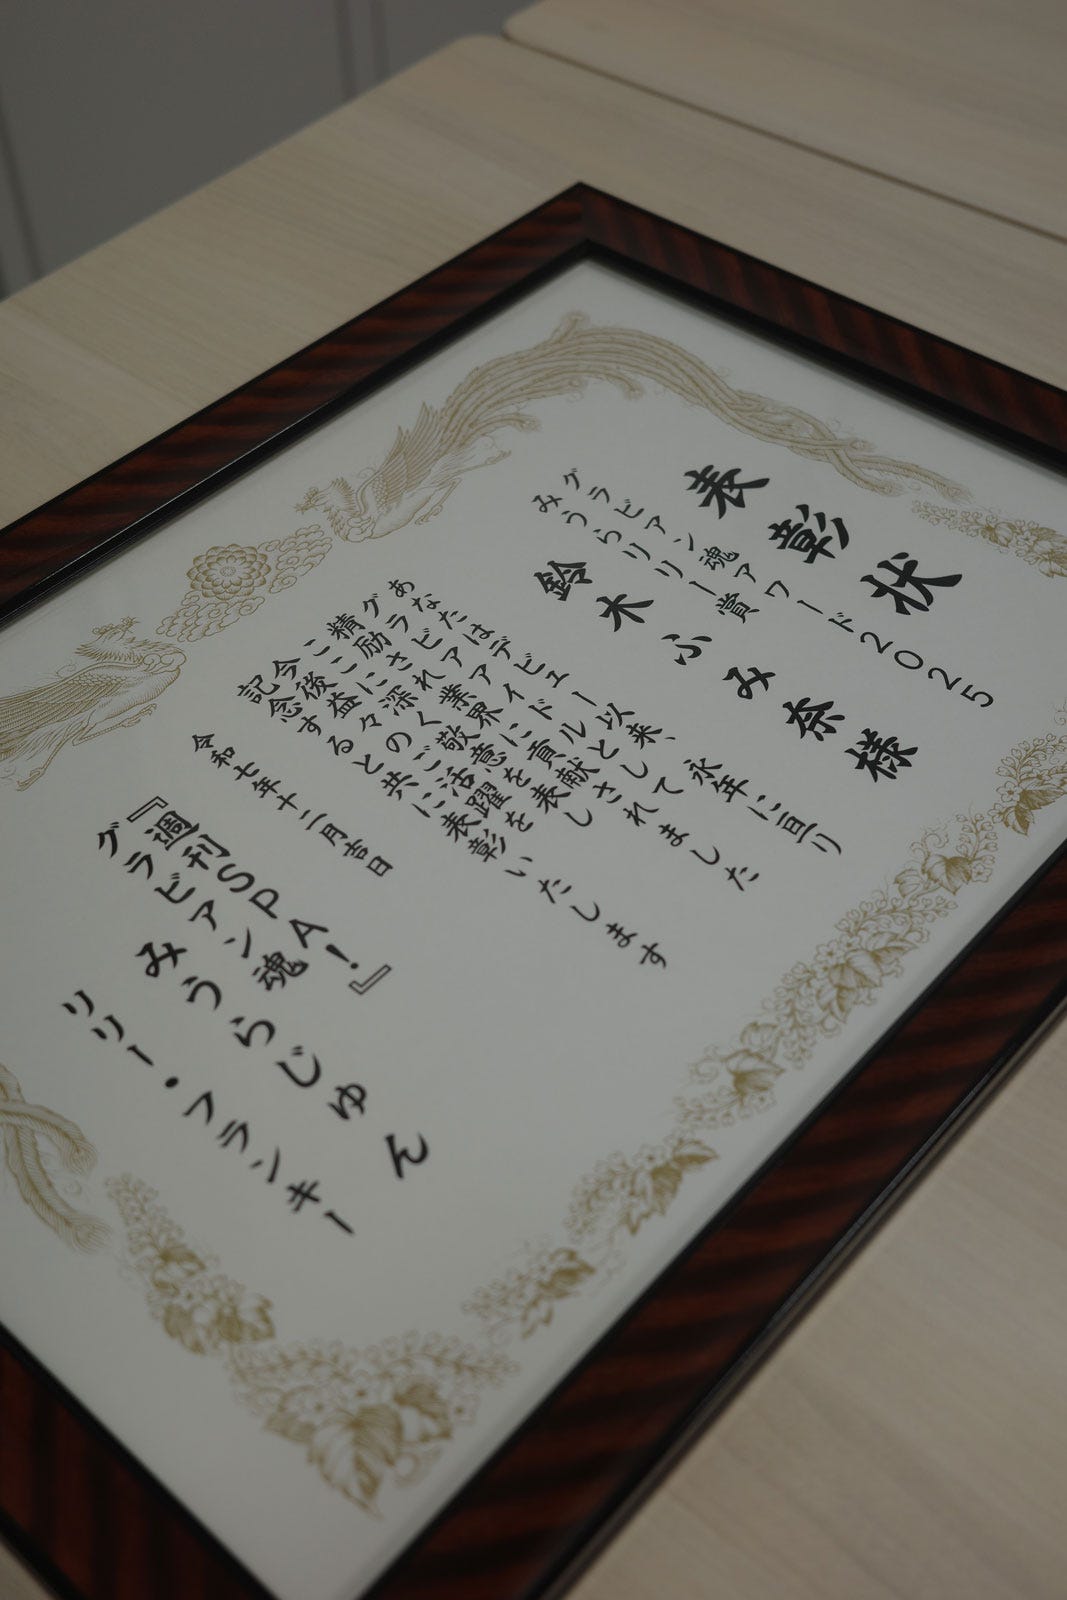 表彰状
グラビアン魂アワード2025
みうらリリー賞
鈴木ふみ奈様
あなたはデビュー以来、永年に亘り
グラビアアイドルとして
精励され業界に貢献されました
ここに深く敬意を表し
今後益々のご活躍を
記念すると共に表彰いたします
令和七年十二月吉日
『週刊SPA!』
グラビアン魂
みうらじゅん
リリー・フランキー